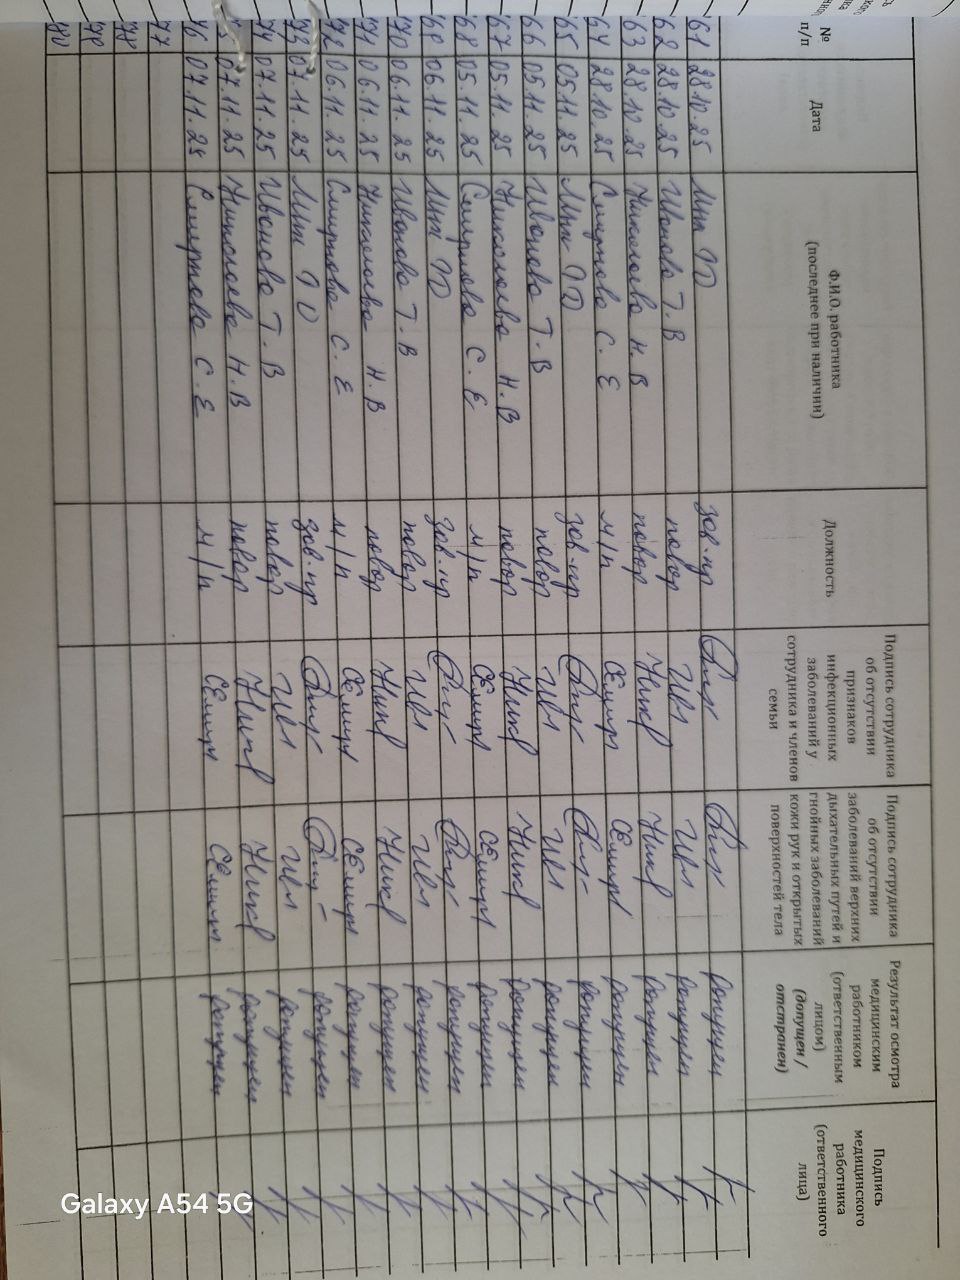 № п/п
Дата
Ф.И.О. работника
(последнее при наличии)
Должность
Подпись сотрудника
об отсутствии
признаков
инфекционных
заболеваний у
сотрудника и членов
семьи
Подпись сотрудника
об отсутствии
заболеваний верхних
дыхательных путей и
гнойных заболеваний
кожи рук и открытых
поверхностей тела
Результат осмотра
медицинским
работником
(ответственным
лицом)
(допущен /
отстранен)
Подпись
медицинского
работника
(ответственного
лица)
61 28.10.25 зав.пр допущен
62 28.10.25 Иванова Т.В повар Ив допущен
63 28.10.25 Николаева Н.В повар Ник допущен
64 28.10.25 Смирнова С.Е м/п СЕмир допущен
65 05.11.25 зав.пр допущен
66 05.11.25 Иванова Т.В повар Ив допущен
67 05.11.25 Николаева Н.В повар Ник допущен
68 05.11.25 Смирнова С.Е м/п СЕмир допущен
69 06.11.25 зав.пр допущен
70 06.11.25 Иванова Т.В повар Ив допущен
71 06.11.25 Николаева Н.В повар Ник допущен
72 06.11.25 Смирнова С.Е м/п СЕмир допущен
73 07.11.25 зав.пр допущен
74 07.11.25 Иванова Т.В повар Ив допущен
75 07.11.25 Николаева Н.В повар Ник допущен
76 07.11.25 Смирнова С.Е м/п СЕмир допущен
77
78
79
80
Galaxy A54 5G